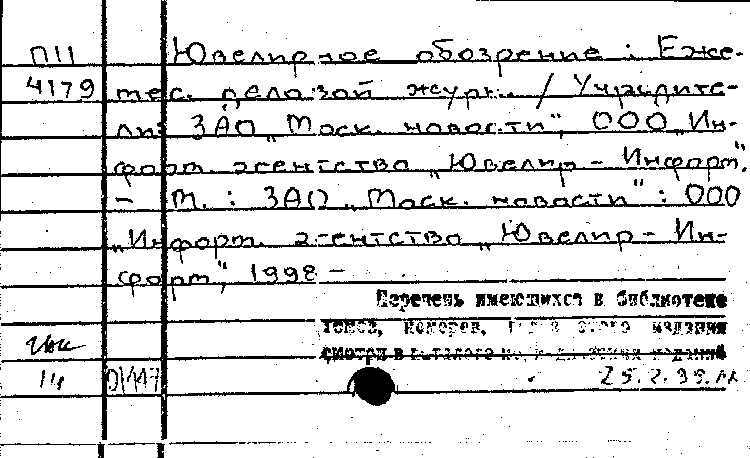 П11 Ювелирное обозрение : Еже-
4179 мес. деловой журн. / Учредите-
ли: ЗАО „Моск. новости", ООО „Ин-
форм. агентство „Ювелир - Информ".
- М. : ЗАО „Моск. новости" : ООО
„Информ. агентство „Ювелир - Ин-
форм", 1998 -
Перечень имеющихся в библиотеке
томов, номеров, этого издания
смотри в каталоге изданий